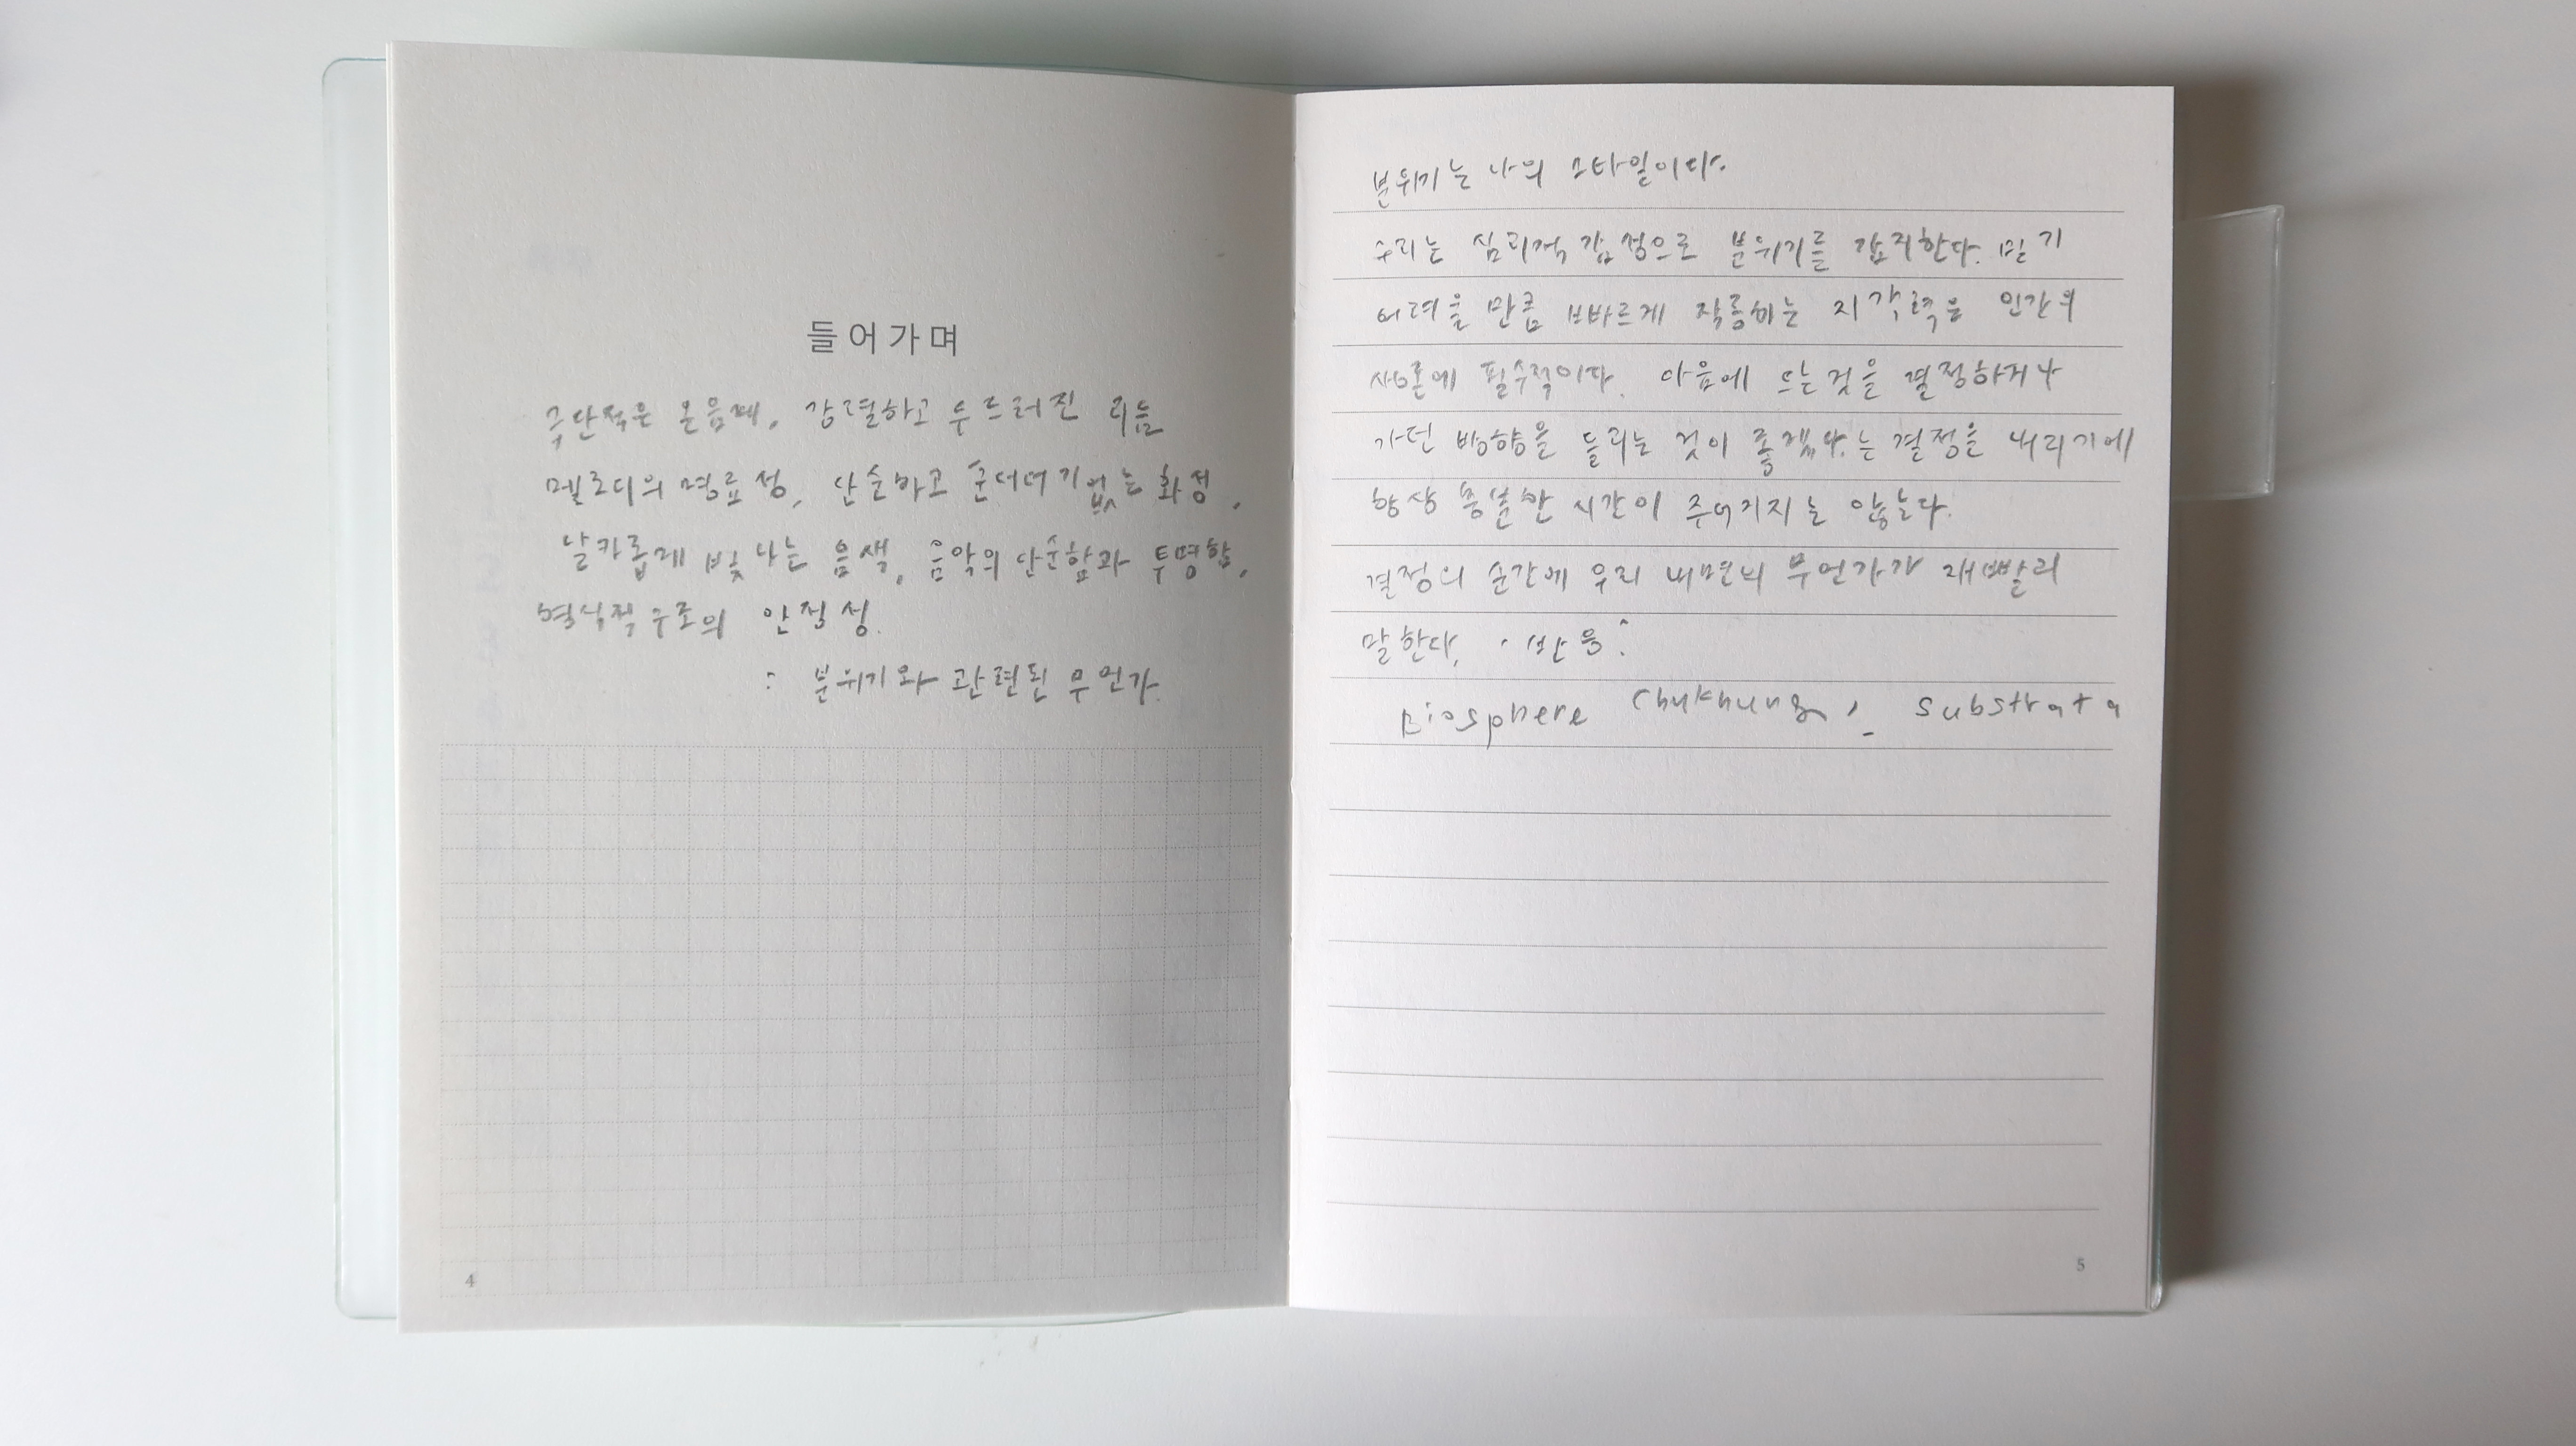 들어가며
극단적은 온음계, 강렬하고 두드러진 리듬
멜로디의 명료성, 단순하고 군더더기없는 화성,
날카롭게 빛나는 음색, 음악의 단순함과 투명함,
형식적구조의 안정성.
: 분위기와 관련된 무언가.
4
분위기는 나의 스타일이다.
우리는 심리적 감정으로 분위기를 감지한다. 믿기
어려울 만큼 빠르게 작동하는 지각력은 인간의
생존에 필수적이다. 마음에 드는것을 결정하거나
가던 방향을 돌리는 것이 좋겠다는 결정을 내리기에
항상 충분한 시간이 주어지지는 않는다.
결정의 순간에 우리 내면의 무언가가 재빨리
말한다. '반응'
Biosphere , substrata
5